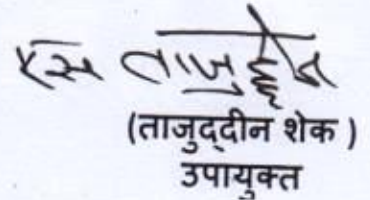 एस ताजुद्दीन
(ताजुद्‌दीन शेक )
उपायुक्त